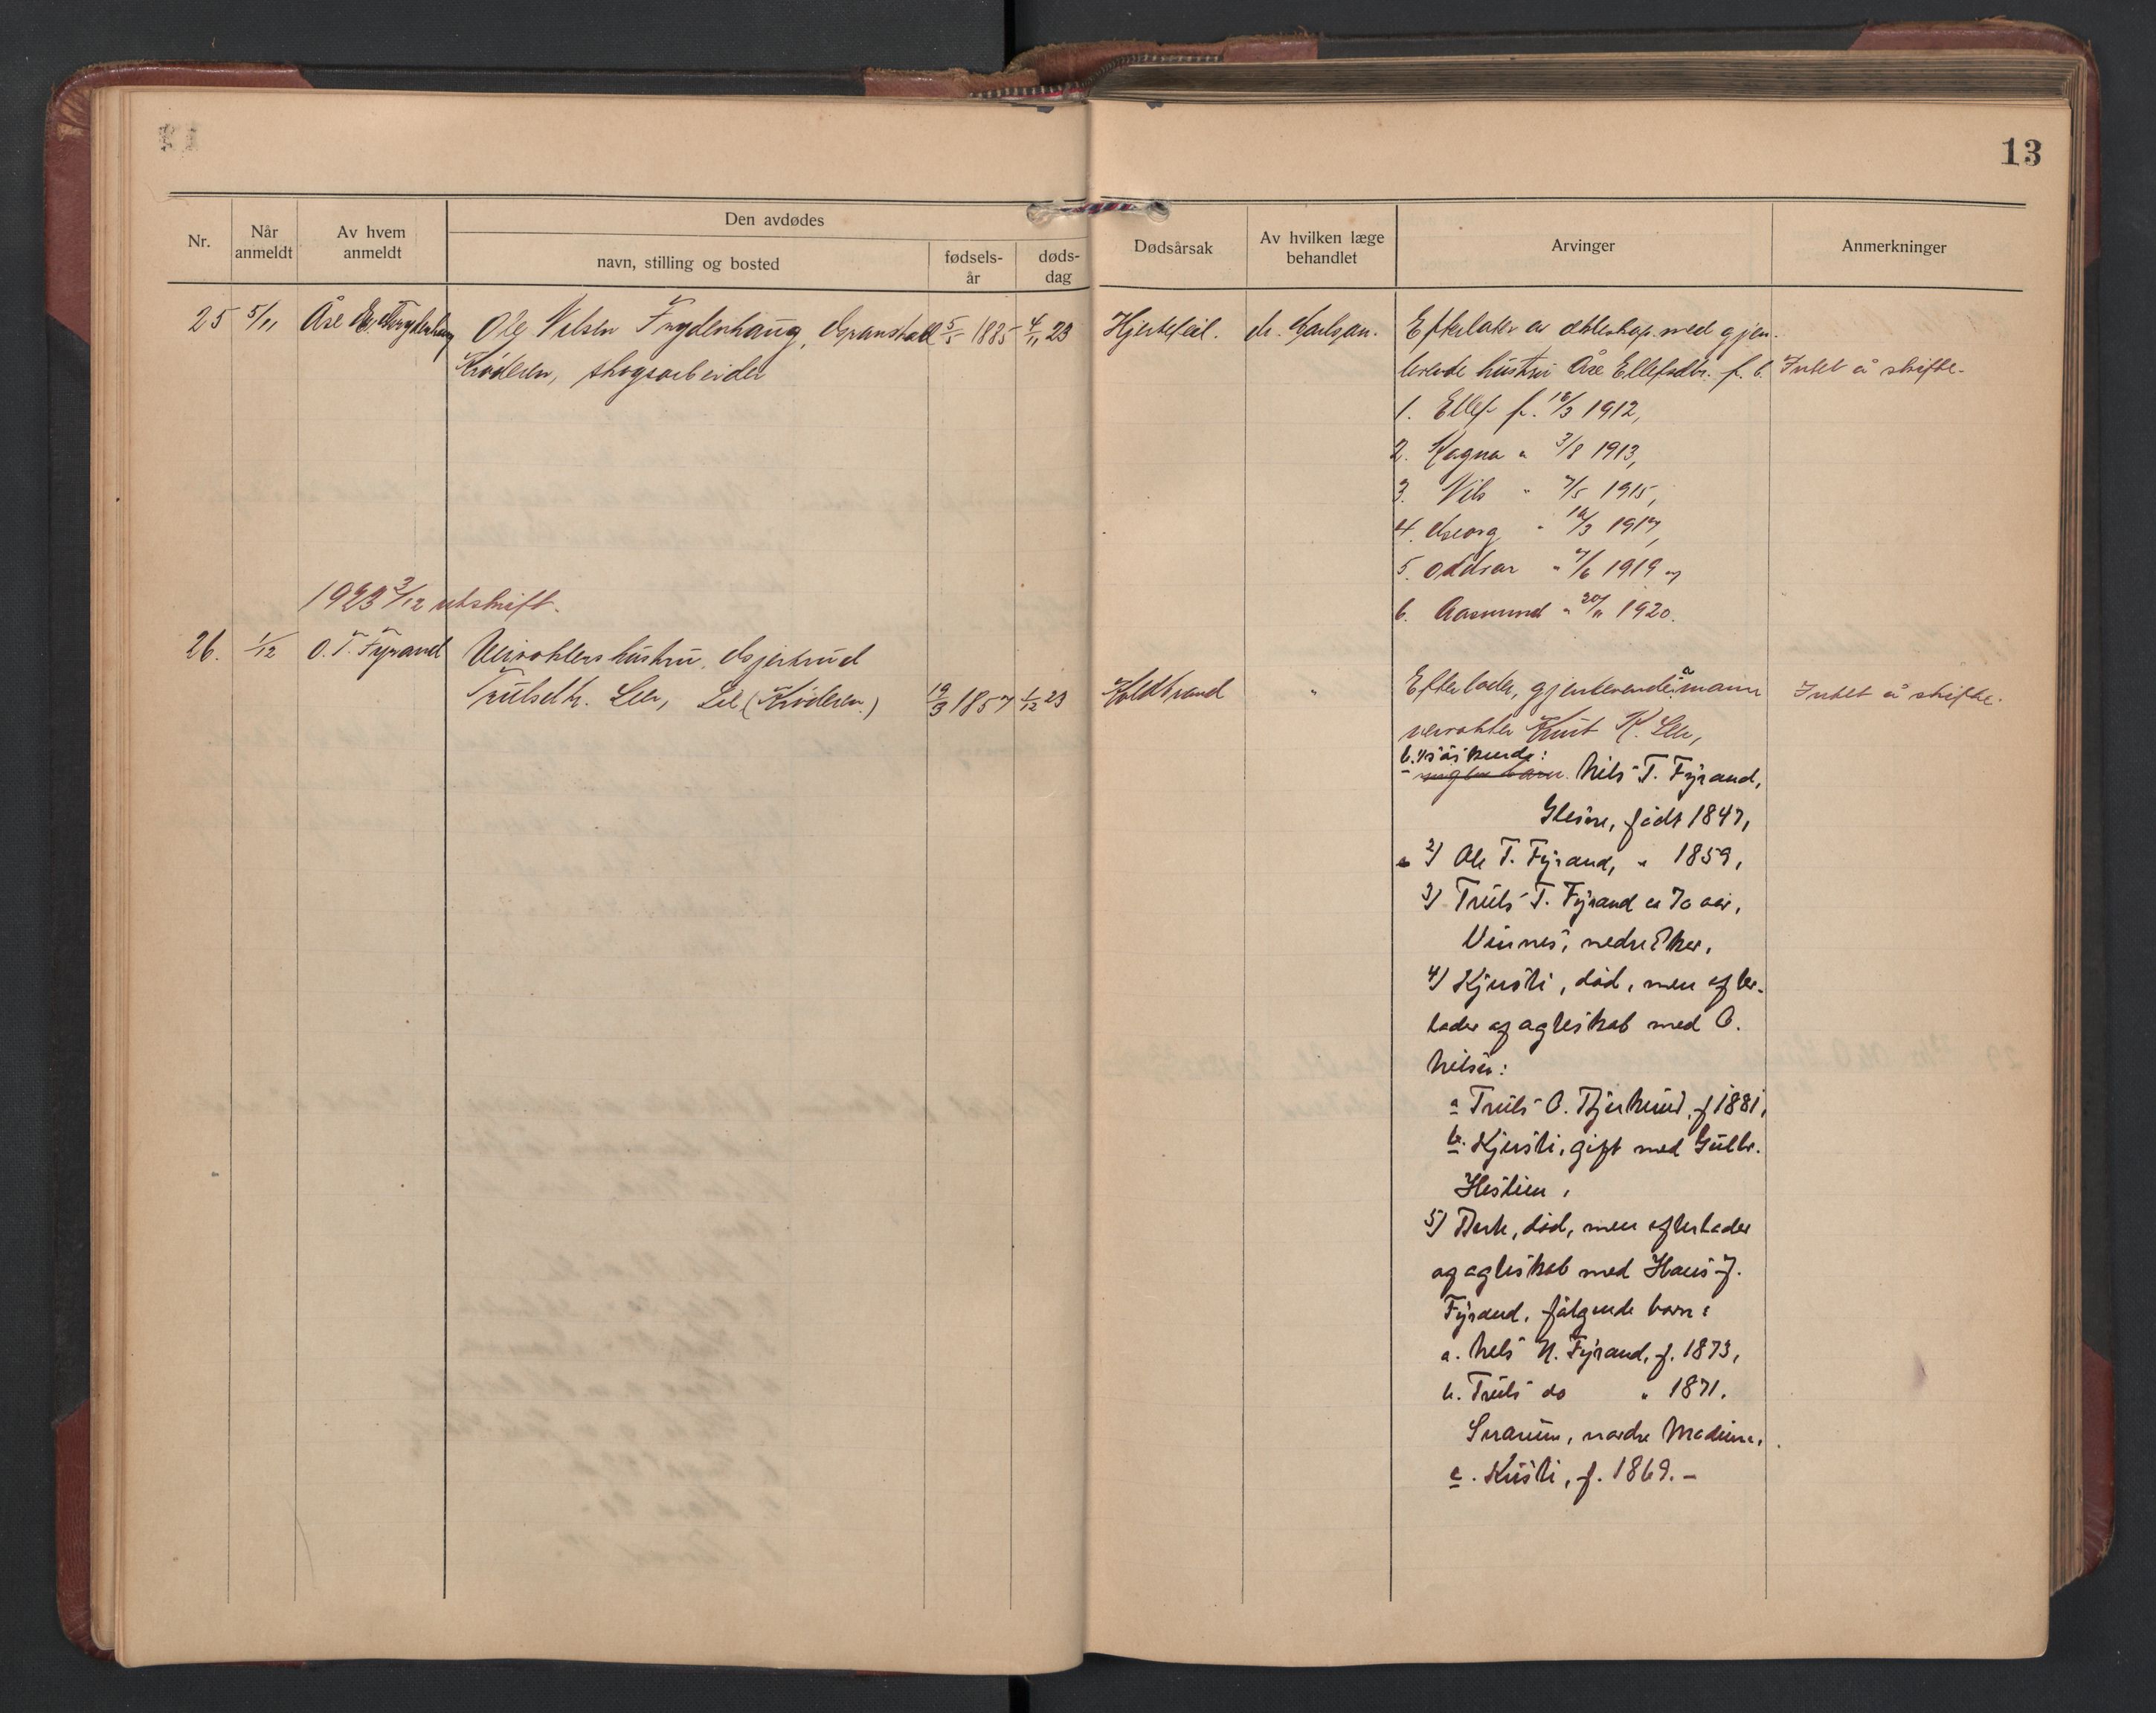 13
Nr.
Når anmeldt
Av hvem anmeldt
Den avdødes
navn, stilling og bosted
fødsels-
år
døds-
dag
Dødsårsak
Av hvilken læge
behandlet
Arvinger
Anmerkninger
25 5/11 Åse Frydenhaug Ole Nilsen Frydenhaug, 5/5 1885 4/11 23 Hjertefeil. dr.
Krøderen, skogsarbeider
Efterlater av ekteskap med gjen-
levende hustru Åse Ellefsdtr. f. b. Intet å skifte.
1. Ellef f. 18/3 1912,
2. Magna " 3/8 1913,
3. Nils " 7/5 1915,
4. Georg " 1917,
5. Oddvar " 7/6 1919 og
6. Aasmund " 20/11 1920.
1923 3/12 utskrift.
26. 1/12 O. T. Fyrand Veivokters hustru, Gjertrud
Trulsdtr. Lee, (Krøderen.) 19/3 1857 1/12 23 Koldbrand "
Efterlader, gjenlevende mann Intet å skifte.
veivokter Knut K. Lee,
b. søskende:
Nils T. Fyrand,
Glesne, født 1847,
2) Ole T. Fyrand, " 1859,
3) Truls T. Fyrand ca 70 aar,
Vinnes, nedre Eker,
4) Kjersti, død, men efter-
lader af egteskab med O.
Nilsen:
a Truls O. Bjerknæs, f 1881,
b. Kjersti, gift med Gulbr.
Heslien,
5) Berte, død, men efterlader
af egteskab med Hans J.
Fyrand, følgende barn:
a. Nels H. Fyrand, f. 1873,
b. Truls do " 1871.
Snarum, nordre Modum,
c. Kristi, f. 1869. –